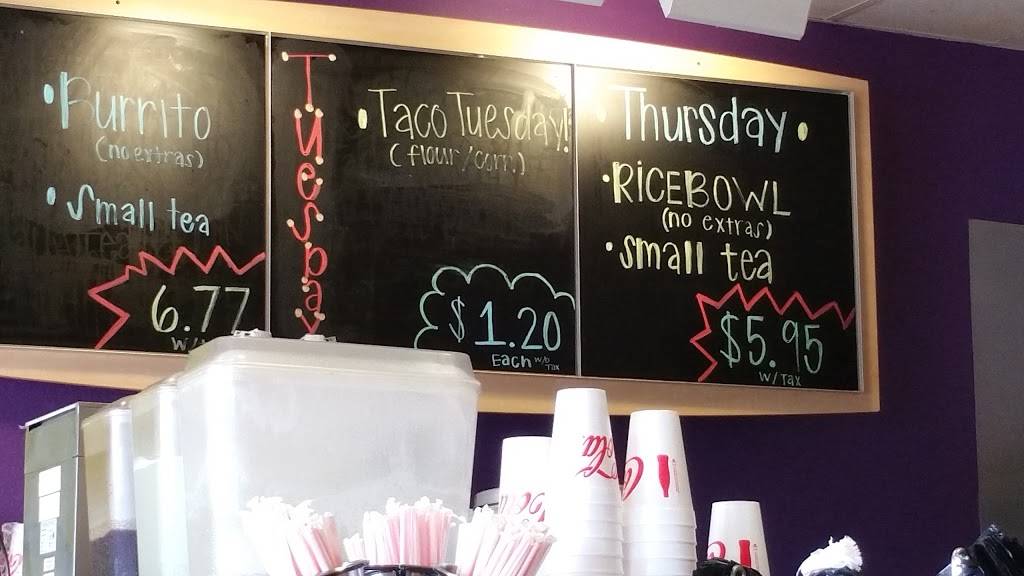 • Burrito
(no extras)
• Small tea
6.77
Tuesday
• Taco Tuesday!
(flour/corn)
$1.20
Each w/o
Tax
Thursday •
• RICEBOWL
(no extras)
• small tea
$5.95
w/Tax